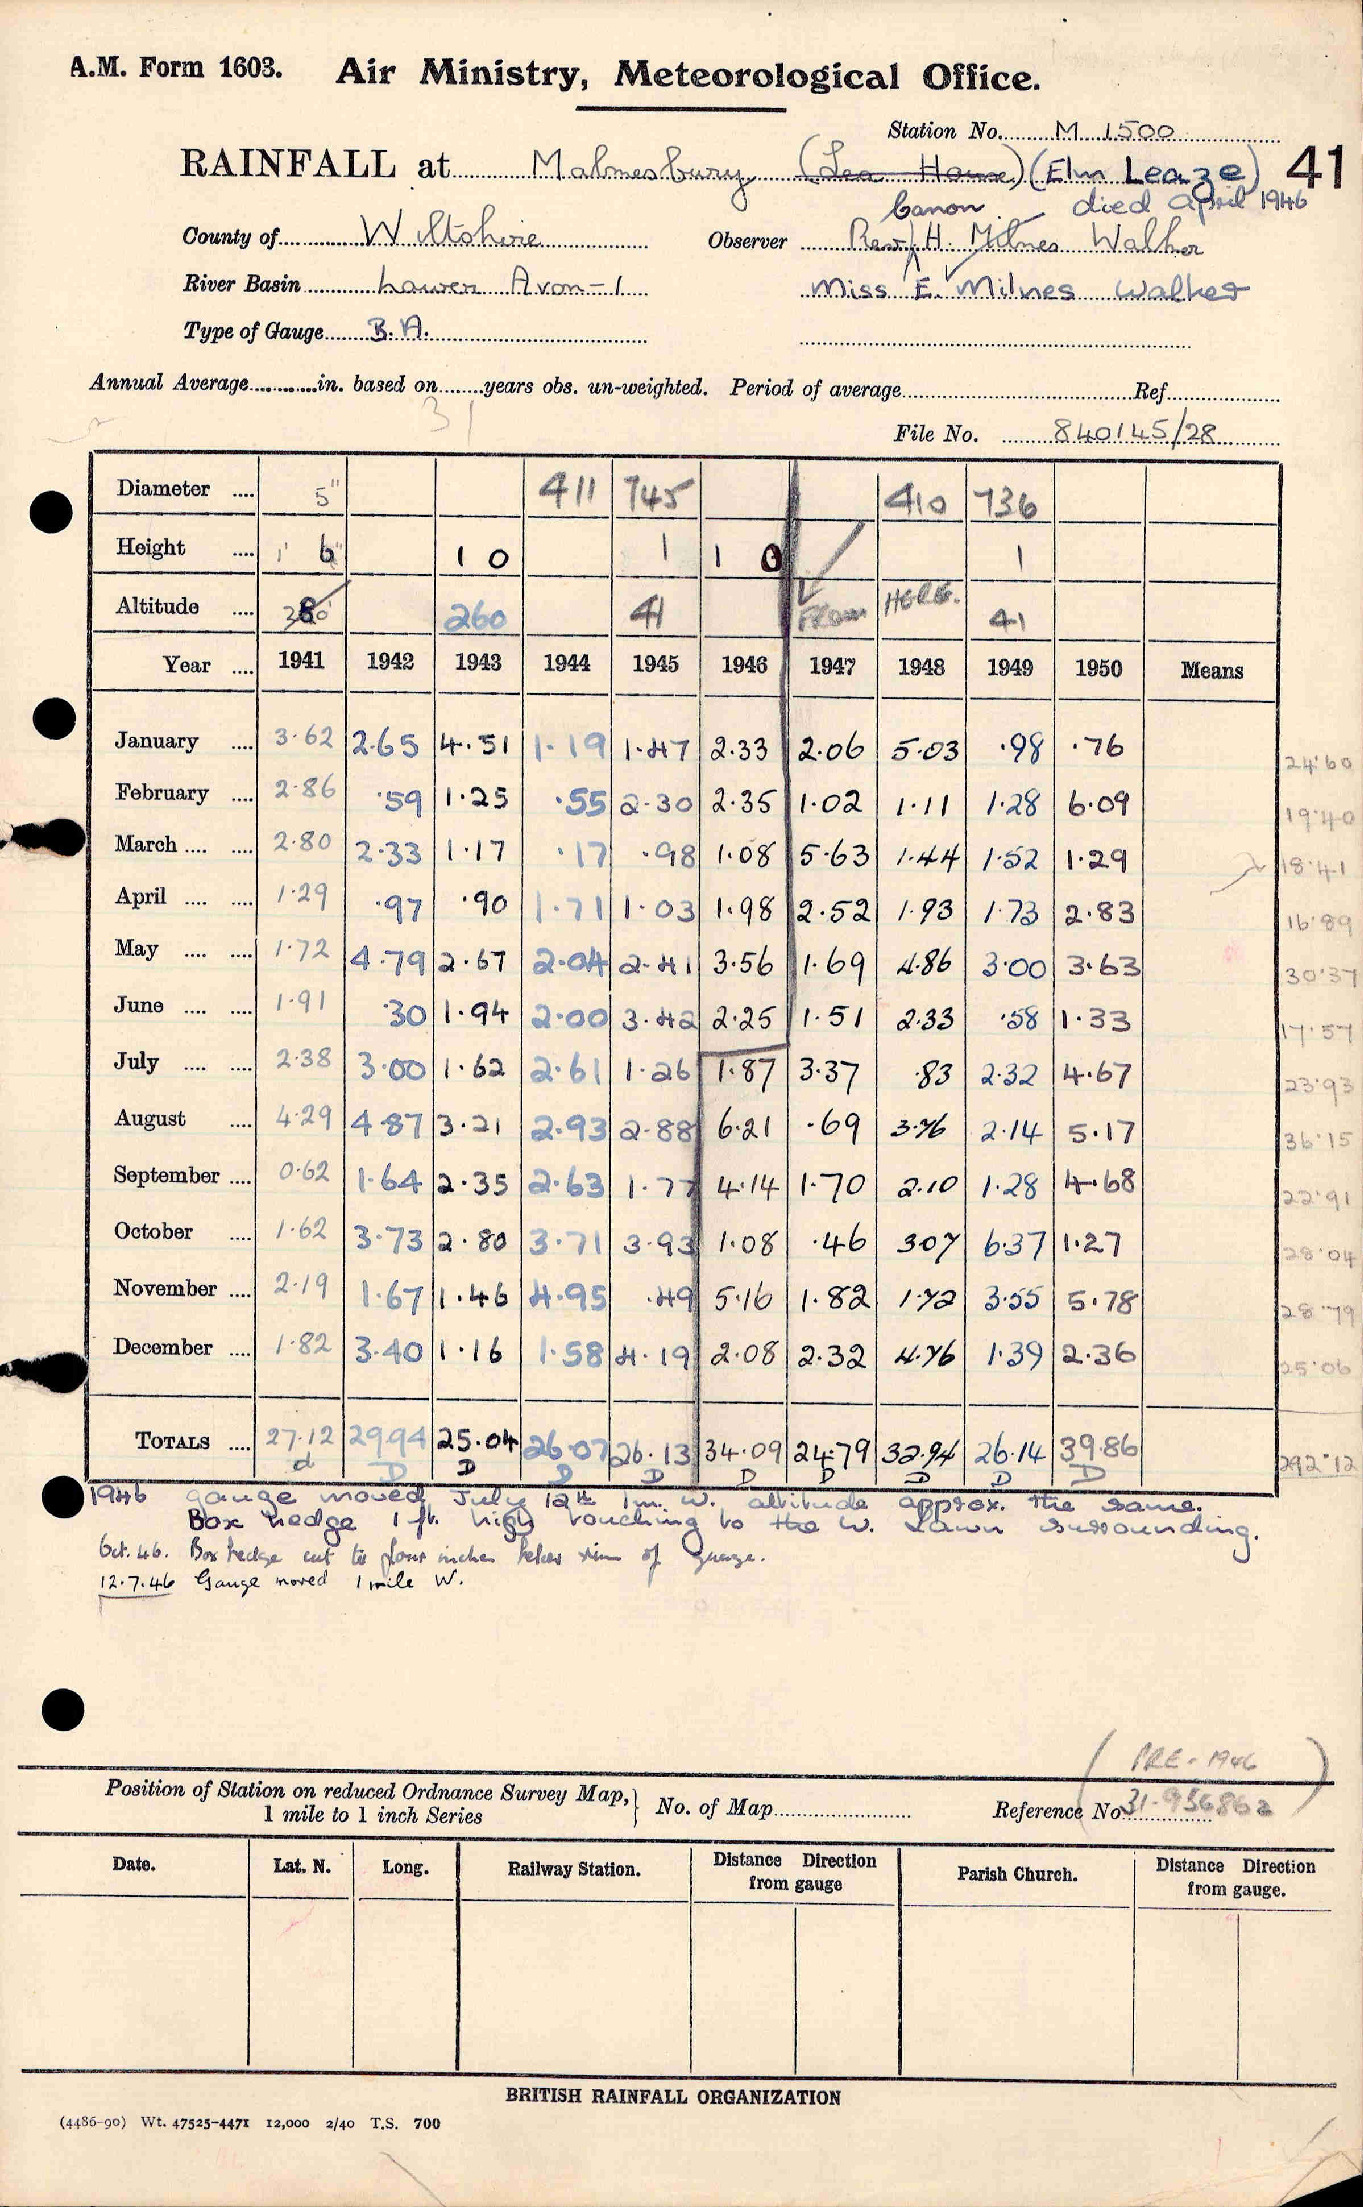 A.M. Form 1603. Air Ministry, Meteorological Office.
Station No. M 1500
RAINFALL at Malmesbury (Lea House) (Elm Leaze) 41
Canon died April 1946
County of Wiltshire Observer Rev. H. Milnes Walker
River Basin Lower Avon-1 Miss E. Milnes Walker
Type of Gauge B.A.
Annual Average in. based on years obs. un-weighted. Period of average Ref
31
File No. 840145/28
Diameter 5" 411 745 410 736
Height 1' 6" 1 0 1 1 0 1
Altitude 260 41 FROM HERE. 41
Year 1941 1942 1943 1944 1945 1946 1947 1948 1949 1950 Means
January 3.62 2.65 4.51 1.19 1.47 2.33 2.06 5.03 .98 .76 24.60
February 2.86 .59 1.25 .55 2.30 2.35 1.02 1.11 1.28 6.09 19.40
March 2.80 2.33 1.17 .17 .98 1.08 5.63 1.44 1.52 1.29 18.41
April 1.29 .97 .90 1.71 1.03 1.98 2.52 1.93 1.73 2.83 16.89
May 1.72 4.79 2.67 2.04 2.41 3.56 1.69 4.86 3.00 3.63 30.37
June 1.91 .30 1.94 2.00 3.42 2.25 1.51 2.33 .58 1.33 17.57
July 2.38 3.00 1.62 2.61 1.26 1.87 3.37 .83 2.32 4.67 23.93
August 4.29 4.87 3.21 2.93 2.88 6.21 .69 3.76 2.14 5.17 36.15
September 0.62 1.64 2.35 2.63 1.77 4.14 1.70 2.10 1.28 4.68 22.91
October 1.62 3.73 2.80 3.71 3.93 1.08 .46 3.07 6.37 1.27 28.04
November 2.19 1.67 1.46 4.95 .49 5.16 1.82 1.72 3.55 5.78 28.79
December 1.82 3.40 1.16 1.58 4.19 2.08 2.32 4.76 1.39 2.36 25.06
TOTALS 27.12 29.94 25.04 26.07 26.13 34.09 24.79 32.94 26.14 39.86 292.12
d D D D D D D D D D
1946 gauge moved July 12th 1m. W. altitude approx. the same.
Box hedge 1 ft. high touching to the W. Lawn surrounding.
Oct. 46. Box hedge cut to four inches below rim of guage.
12.7.46 Gauge moved 1 mile W.
(PRE-1946
Position of Station on reduced Ordnance Survey Map, 1 mile to 1 inch Series} No. of Map Reference No 31.936862)
Date. Lat. N. Long. Railway Station. Distance Direction from gauge Parish Church. Distance Direction from gauge.
BRITISH RAINFALL ORGANIZATION
(4486-90) Wt. 47525-4471 12,000 2/40 T.S. 700